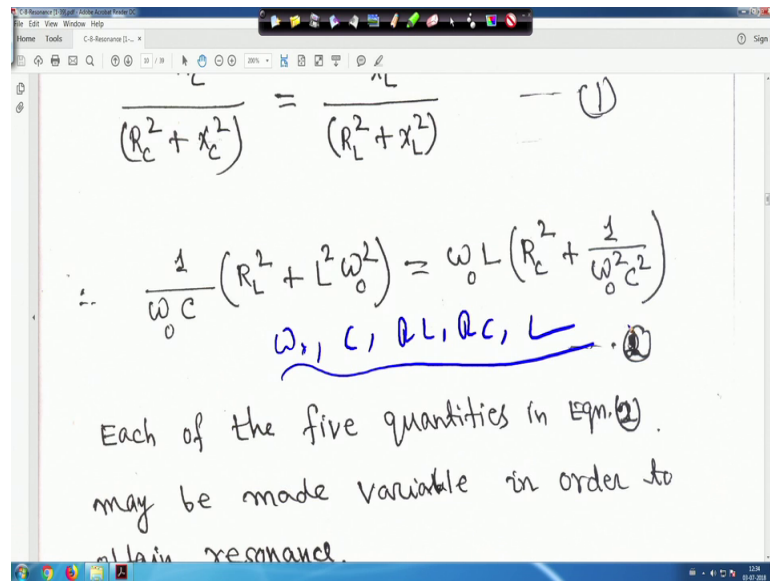 C-8-Resonance [1-39].pdf - Adobe Acrobat Reader DC
File Edit View Window Help
Home Tools C-8-Resonance [1-... × Sign
10 / 39 200%
X_L
(R_C^2 + X_C^2) = (R_L^2 + X_L^2) — (1)
∴ 1/(ω_0 C) (R_L^2 + L^2 ω_0^2) = ω_0 L (R_C^2 + 1/(ω_0^2 C^2))
C, RL, RC, L
Each of the five quantities in Eqn. (2).
may be made variable in order to
obtain resonance.
12:34
03-07-2018